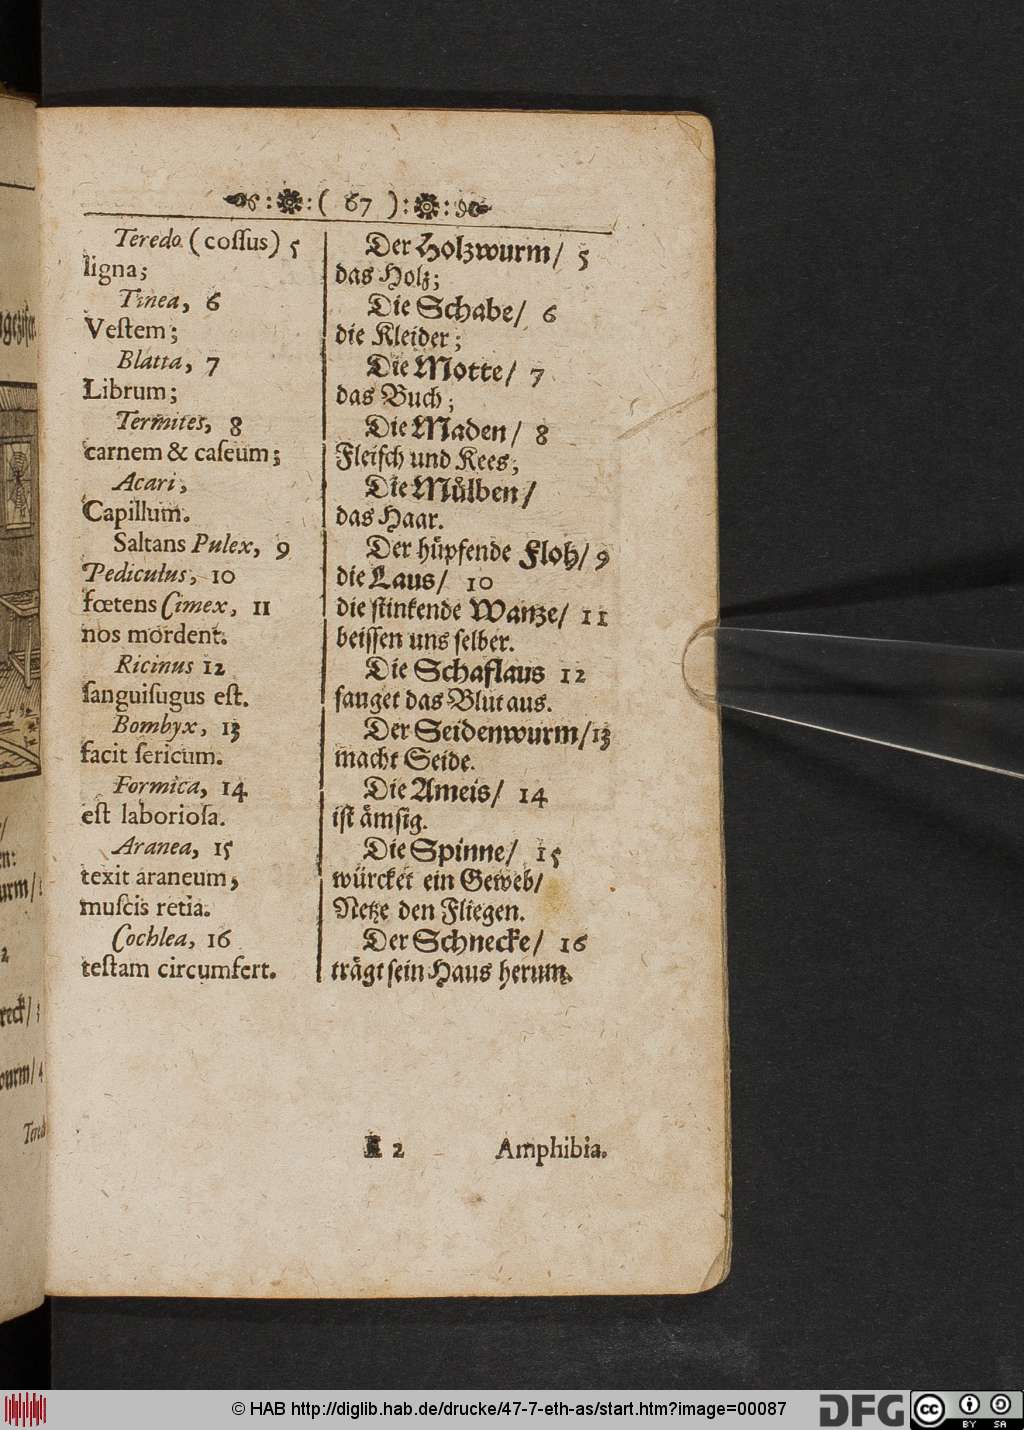 ( 67 )
Teredo (cossus) 5
ligna;
Tinea, 6
Vestem;
Blatta, 7
Librum;
Termites, 8
carnem & caseum;
Acari,
Capillum.
Saltans Pulex, 9
Pediculus, 10
fœtens Cimex, 11
nos mordent.
Ricinus 12
sanguisugus est.
Bombyx, 13
facit sericum.
Formica, 14
est laboriosa.
Aranea, 15
texit araneum,
muscis retia.
Cochlea, 16
testam circumfert.
Der Holzwurm/ 5
das Holz;
Die Schabe/ 6
die Kleider;
Die Motte/ 7
das Buch;
Die Maden/ 8
Fleisch und Kees;
Die Mülben/
das Haar.
Der hüpfende Floh/ 9
die Laus/ 10
die stinkende Wanze/ 11
beissen uns selber.
Die Schaflaus 12
sauget das Blut aus.
Der Seidenwurm/ 13
macht Seide.
Die Ameis/ 14
ist ämsig.
Die Spinne/ 15
würcket ein Geweb/
Netze den Fliegen.
Der Schnecke/ 16
trägt sein Haus herum.
K 2 Amphibia.
© HAB http://diglib.hab.de/drucke/47-7-eth-as/start.htm?image=00087
DFG
cc BY SA